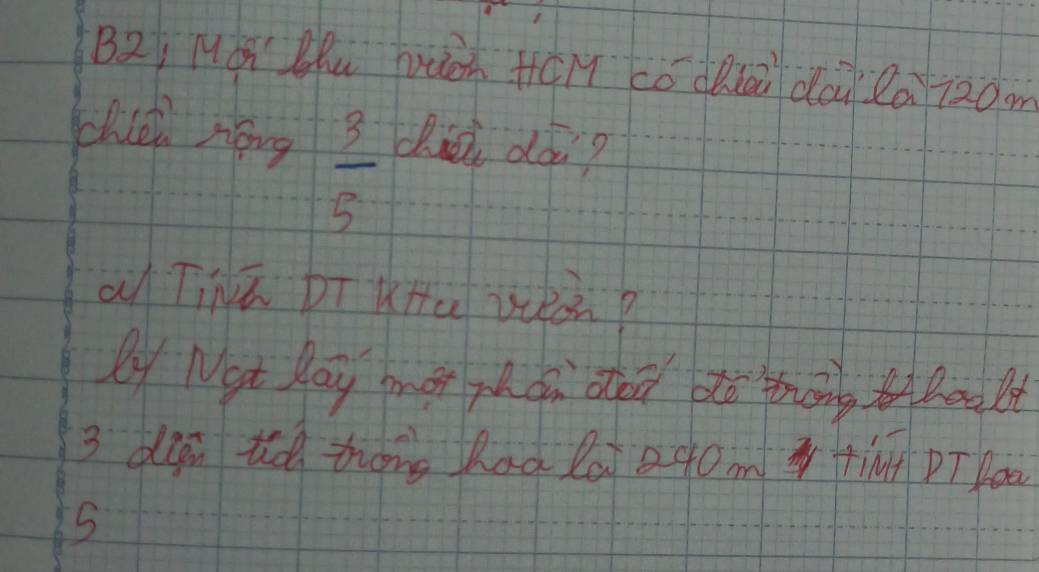 B2; Một khu vườn HCM có chiều dài là 120m
chiều rộng 3 chiều dài?
5
a/ TíNh DT KHu vườn?
b/ Ngt lấy một phần đất để trồng hoa bt
3 diện tích trồng hoa là 240m TíNH DT hoa
5